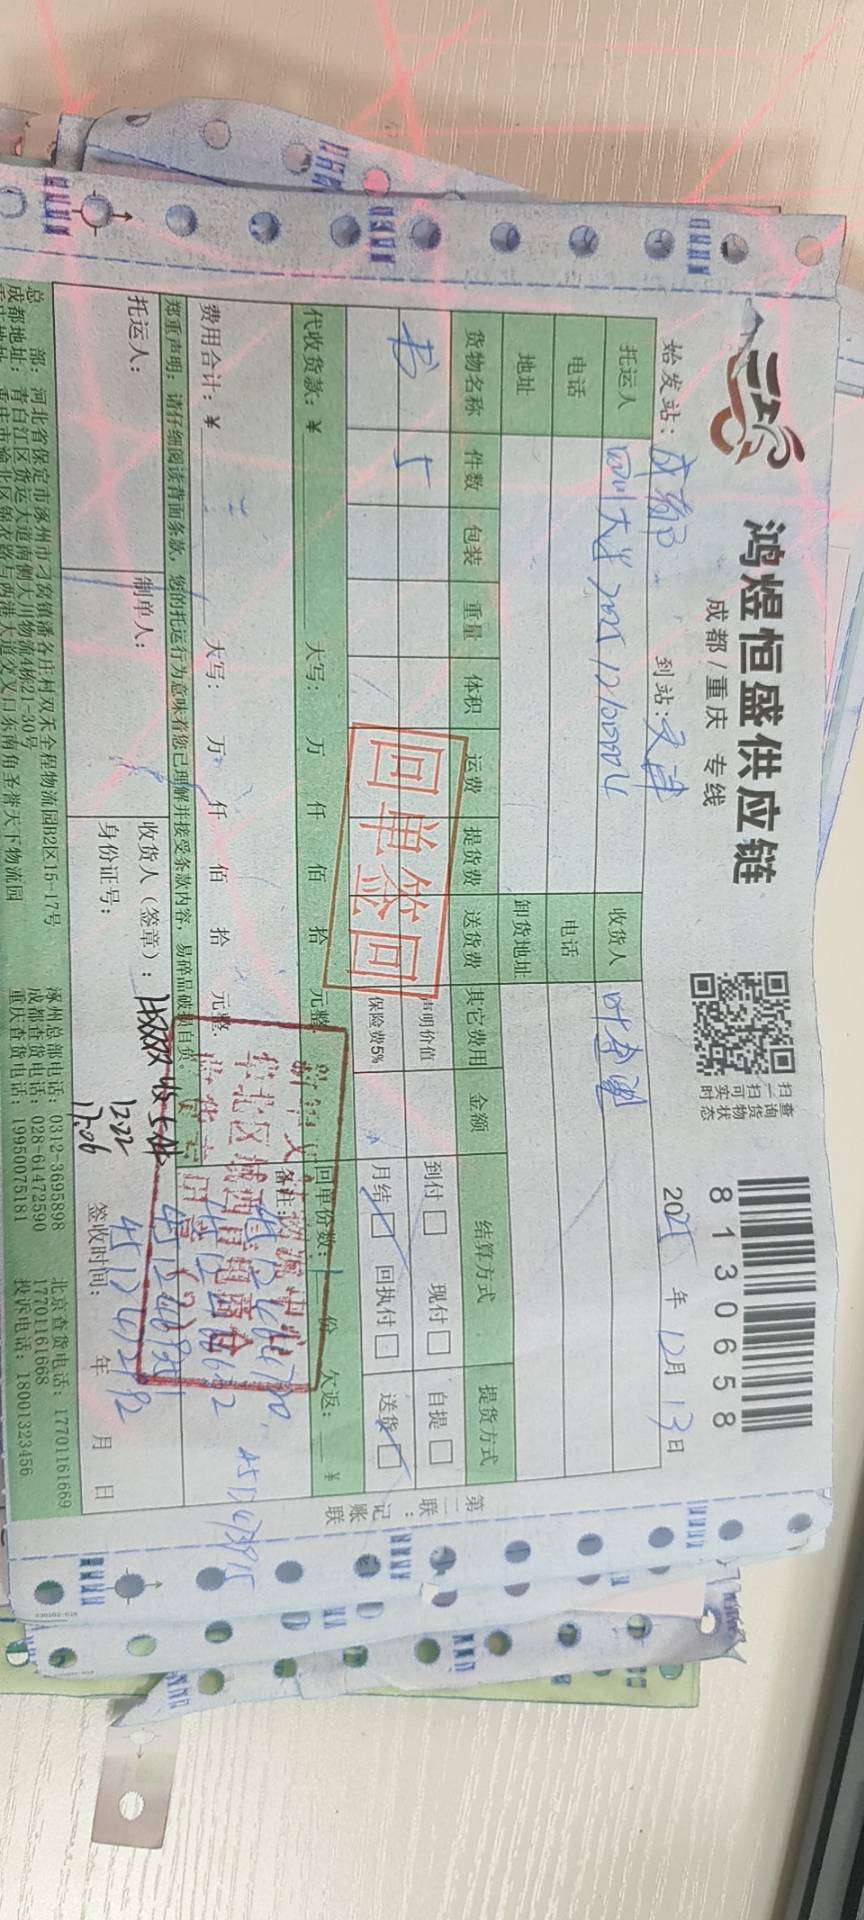 鸿煜恒盛供应链
成都/重庆 专线
扫一扫可实时
查询货物状态
8130658
始发站：成都
到站：天津
2025年12月13日
托运人 四川大学 20251201067004
收货人
电话
电话
地址
卸货地址
货物名称 件数 包装 重量 体积 运费 提货费 送货费 其它费用 金额 结算方式 提货方式
书 5
声明价值
到付□ 现付□ 自提□
保险费5%
月结□ 回执付□ 送货□
回单签回
代收货款：¥ 大写： 万 仟 佰 拾 元整
回单份数： 份 欠返： ¥
费用合计：¥ 大写： 万 仟 佰 拾 元整.
备注：
郑重声明：请仔细阅读背面条款，您的托运行为意味着您已理解并接受条款内容，易碎品破损自负。
托运人：
制单人：
收货人（签章）： 收5件
身份证号：
12.22
17:06
签收时间： 年 月 日
第二联：记账联
总 部：河北省保定市涿州市刁窝镇潘各庄村双禾全程物流园B2区15-17号
涿州总部电话：0312-3695898
北京查货电话：17701161669
成都地址：青白江区货运大道南侧大川物流4栋21-30号
成都查货电话：028-61472590
17701161668
重庆地址：重庆市渝北区锦衣路与两港大道交叉口东南角圣誉天下物流园
重庆查货电话：19950075181
投诉电话：18001323456